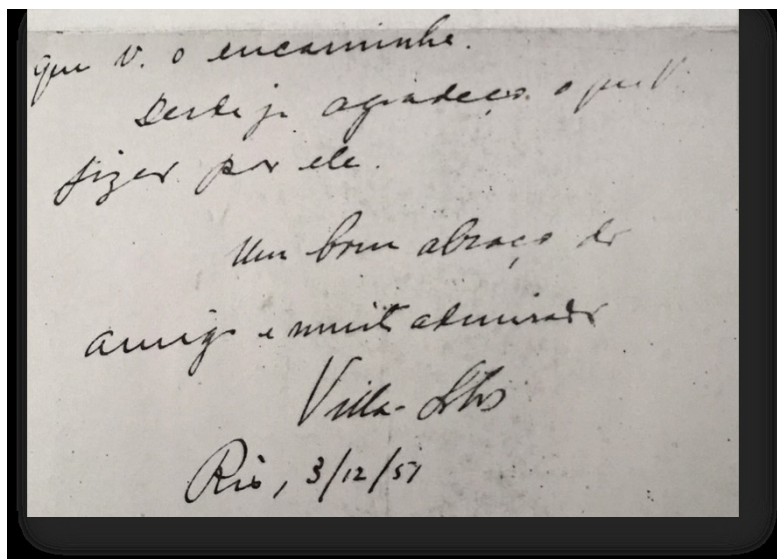 que V. o encaminhe.
Desde já agradeço o que V.
fizer por ele.
Um bom abraço do
amigo e muito admirador
Villa-Lobos
Rio, 3/12/51